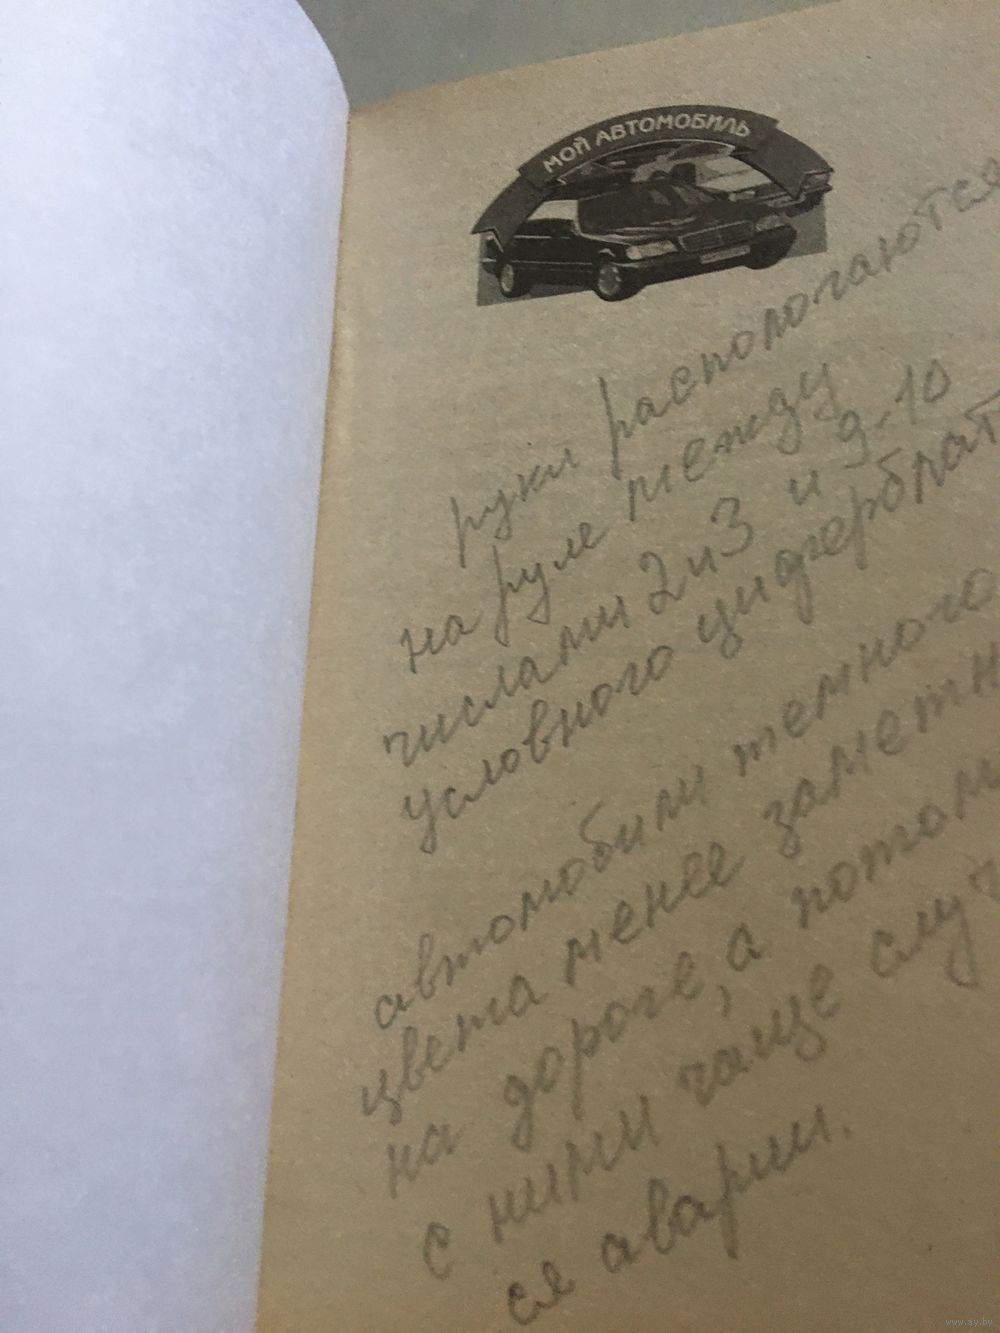 МОЙ АВТОМОБИЛЬ
руки распологаются
на руле между
числами 2 и 3 и 9-10
условного циферблат
автомобили темного
цвета менее заметн
на дороге, а потом
с ними чаще случ
ся аварии.
www.ay.by